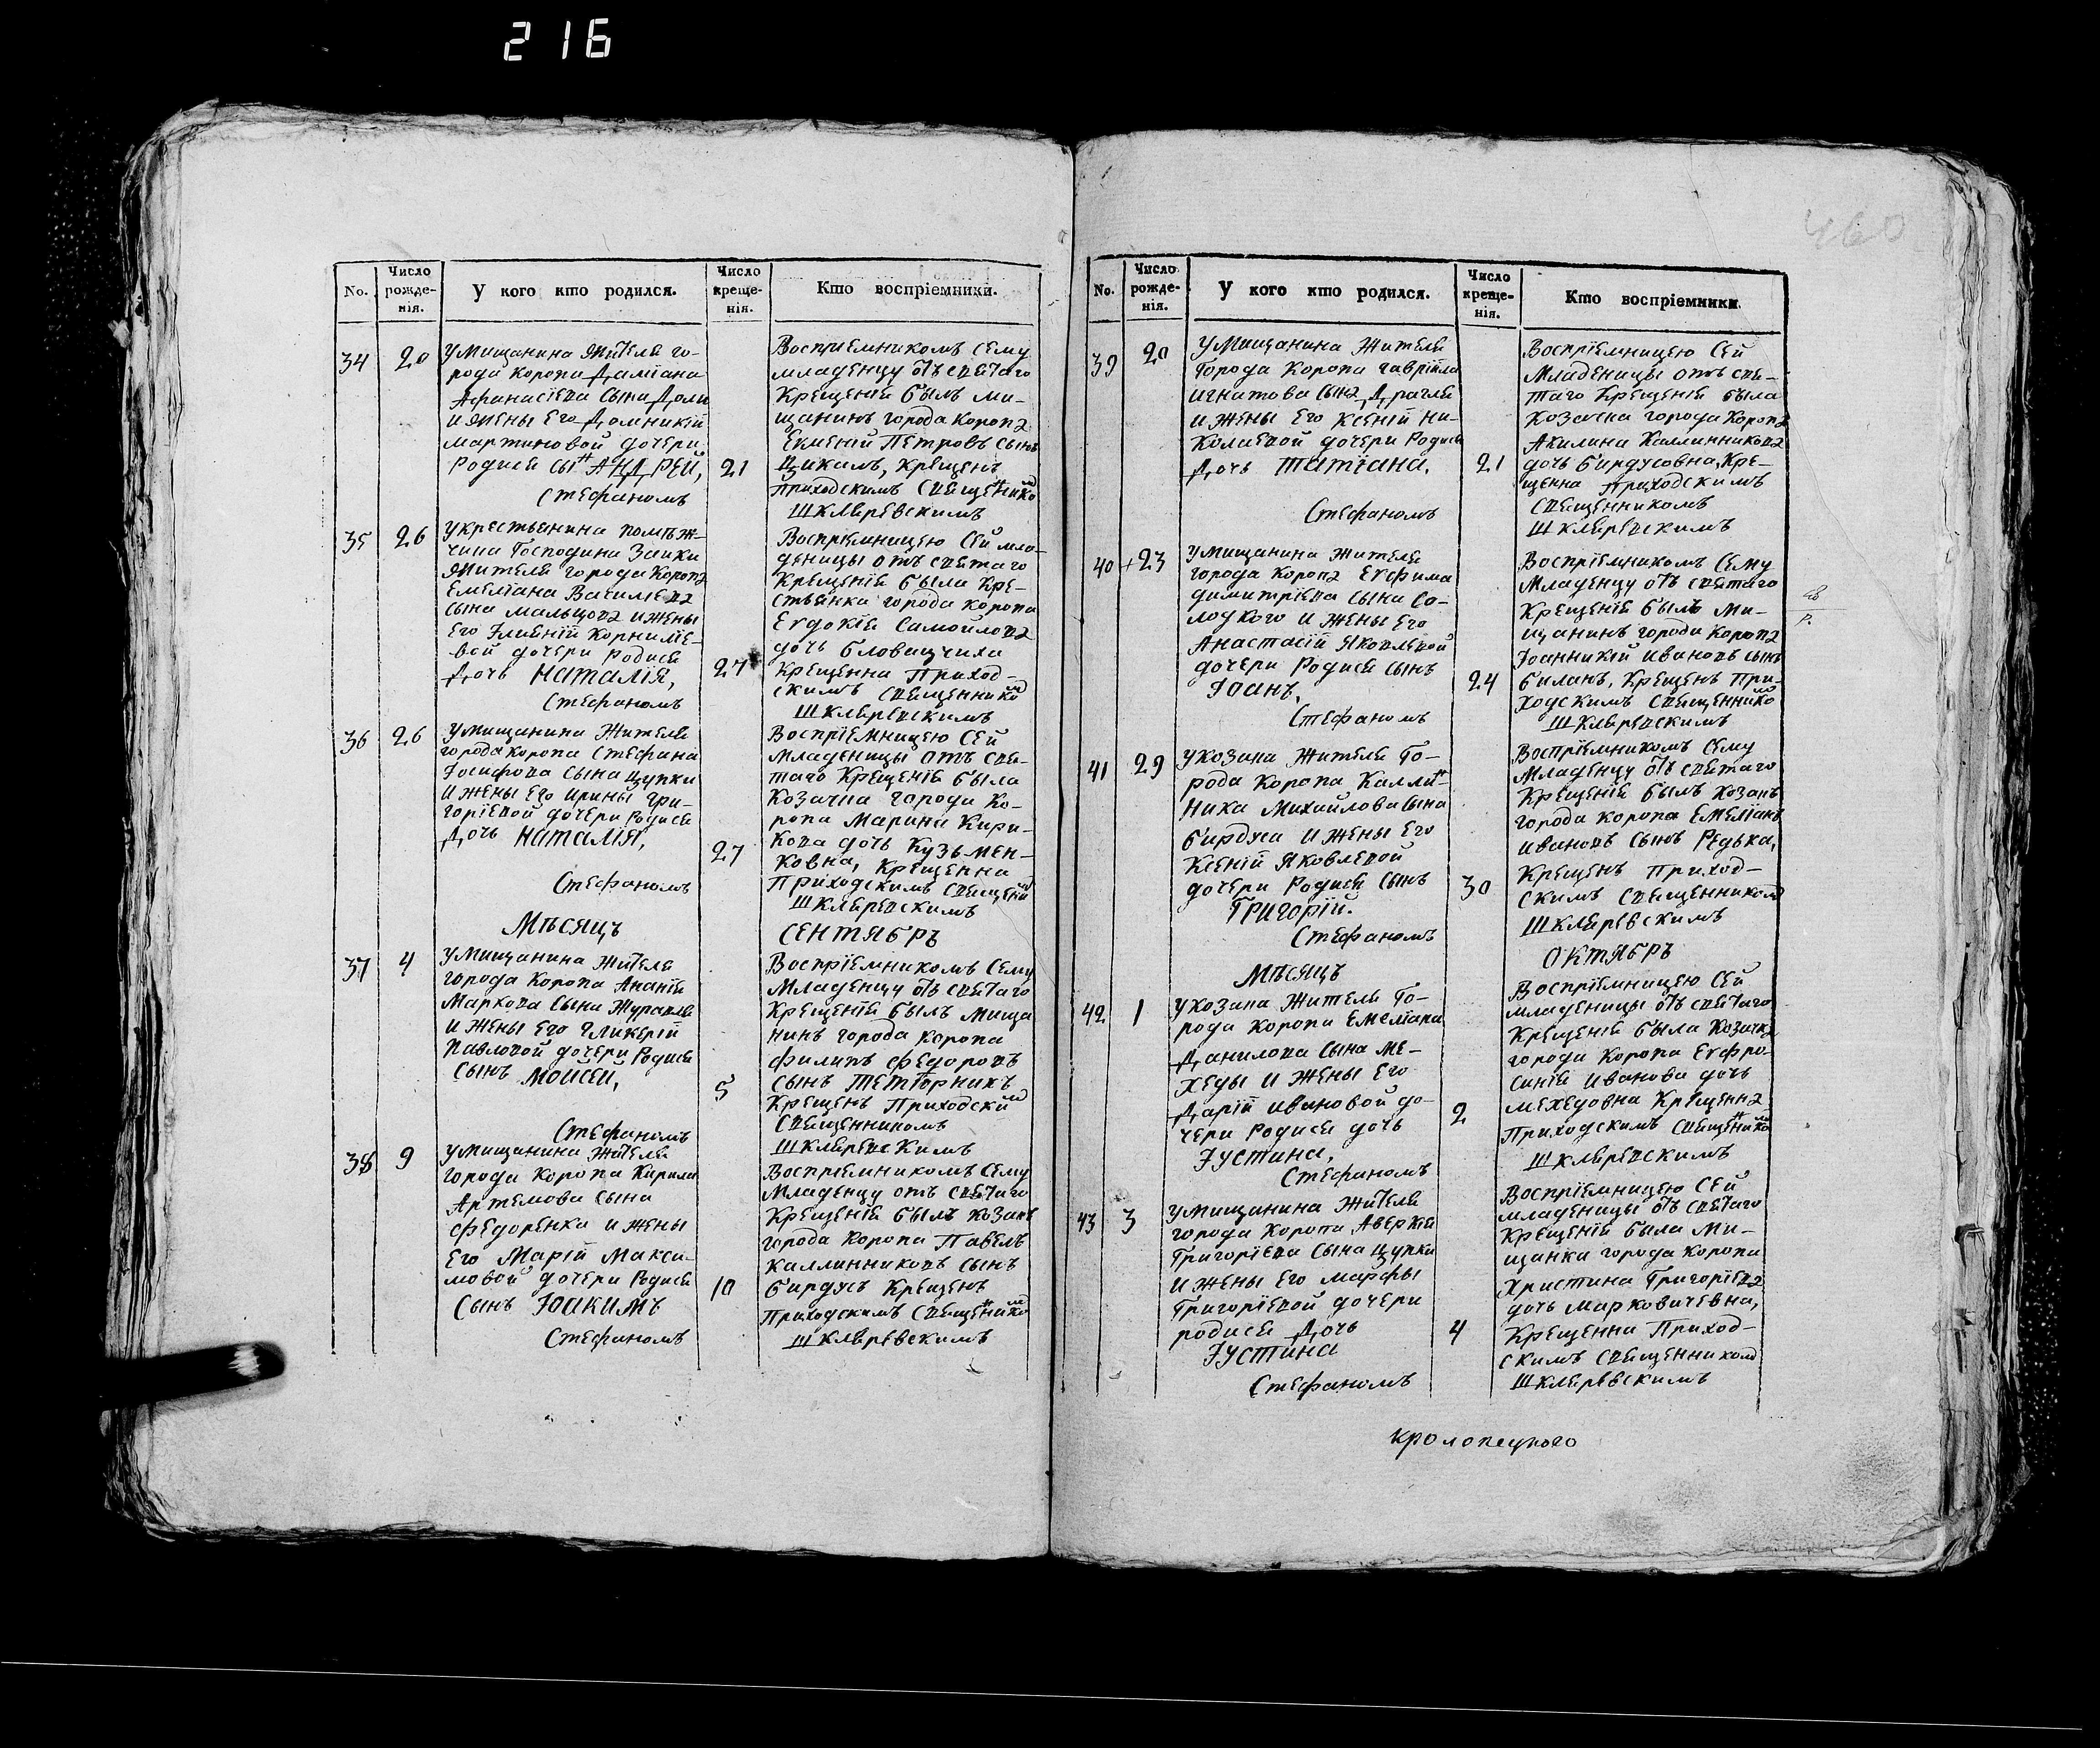 216
460
No.
Число рожде-нія.
У кого кто родился.
Число креще-нія.
Кто воспріемники.
34
20
У Мищанина Жителя го-
рода Коропа Даміана
Афанасіева сына Доли
и жены Его Домникіи
мартиновой дочери
Родися сынъ АНДРЕЙ,
21
Стефаномъ
Воспріемникомъ Сему
младенцу отъ святаго
Крещенія былъ Ми-
щанинъ города Коропа
Евменій Петровъ сынъ
Цикалъ, Крещенъ
приходскимъ Священникомъ
Шкляревскимъ
35
26
У крестьянина помѣж-
чика Господина Заики
Жителя города Коропа
Емеліана Василіева
сына мальцова и жены
Его Іліяніи Корниліе-
вой дочери Родися
Дочь Наталія,
27
Стефаномъ
Воспріемницею Сей мла-
деницы отъ святаго
Крещенія была Кре-
стьянка города Коропа
Евдокія Самойлова
дочь Бловащиха
Крещенна Приход-
скимъ Священникомъ
Шкляревскимъ
36
26
У мищанина Жителя
города Коропа Стефана
Іосифова сына Цупки
и жены Его Ирины Гри-
горіевой дочери Родися
Дочь Наталія,
27
Стефаномъ
Воспріемницею Сей
младеницы отъ свя-
таго Крещенія была
Козачка города Ко-
ропа Марина Кири-
кова дочь Кузьмен-
ковна, Крещенна
Приходскимъ Священикомъ
Шкляревскимъ
Мѣсяцъ
СЕНТЯБРЪ
37
4
У Мищанина Жителя
города Коропа Ананія
Маркова сына Журавля
и жены Его Гликеріи
Павловой дочери Родися
Сынъ Моисей,
5
Стефаномъ
Воспріемникомъ Сему
Младенцу отъ святаго
Крещенія былъ Мища
нинъ города Коропа
Филипъ Федоровъ
сынъ Тетюрникъ
Крещенъ Приходскимъ
Священникомъ
Шкляревскимъ
38
9
У мищанина Жителя
города Коропа Кирила
Артемова сына
Федоренка и жены
Его Маріи Макси-
мовой дочери Родися
Сынъ Іоакимъ
10
Стефаномъ
Воспріемникомъ Сему
Младенцу отъ святаго
Крещенія былъ Козакъ
города Коропа Павелъ
Каллинниковъ сынъ
Бирдусъ Крещенъ
Приходскимъ Священникомъ
Шкляревскимъ
No.
Число рожде-нія.
У кого кто родился.
Число креще-нія.
Кто воспріемники.
39
20
У Мищанина Жителя
Города Коропа Гавріила
Игнатова сына Драгля
и жены Его Ксеніи Ни-
Колаевой дочери Родися
Дочь Татіана,
21
Стефаномъ
Воспріемницею Сей
Младеницы отъ свя-
таго Крещенія была
Козачка города Коропа
Акилина Каллинникова
дочь Бирдусовна, Кре-
щенна Приходскимъ
Священникомъ
Шкляревскимъ
40
+23
У мищанина жителя
города Коропа Евфима
димитріева сына Со-
лодкого и жены Его
Анастасіи Яковлевой
дочери Родися сынъ
Іоанъ,
24
Стефаномъ
Воспріемникомъ Сему
Младенцу отъ святаго
Крещенія былъ Ми-
щанинъ города Коропа
Іоанникій Ивановъ сынъ
Биланъ, Крещенъ При-
ходскимъ Священникомъ
Шкляревскимъ
41
29
У козака Жителя Го-
рода Коропа Каллин-
ника Михайлова сына
Бирдуса и жены Его
Ксеніи Яковлевой
дочери Родися сынъ
Григорій.
30
Стефаномъ
Воспріемникомъ Сему
Младенцу отъ святаго
Крещенія былъ Козакъ
города Коропа Емеліанъ
Ивановъ сынъ Редька,
Крещенъ Приход-
скимъ Священникомъ
Шкляревскимъ
Мѣсяцъ
ОКТЯБРЪ
42
1
У козака Жителя Го-
рода Коропа Емеліана
Данилова сына Ме-
хеды и жены Его
Даріи Ивановой до-
чери Родися дочь
Іустина,
2
Стефаномъ
Воспріемницею Сей
младеницы отъ святаго
Крещенія была Козачка
города Коропа Евфро-
синія Иванова дочь
мехедовна Крещенна
Приходскимъ Священникомъ
Шкляревскимъ
43
3
У мищанина Жителя
города Коропа Аверкія
Григоріева сына Цупки
и жены Его марфы
Григоріевой дочери
родися Дочь
Іустина
4
Стефаномъ
Воспріемницею Сей
младеницы отъ святаго
Крещенія была Ми-
щанка города Коропа
Христина Григоріева
дочь Марковичевна,
Крещенна Приход-
скимъ Священникомъ
Шкляревскимъ
кролопецкого